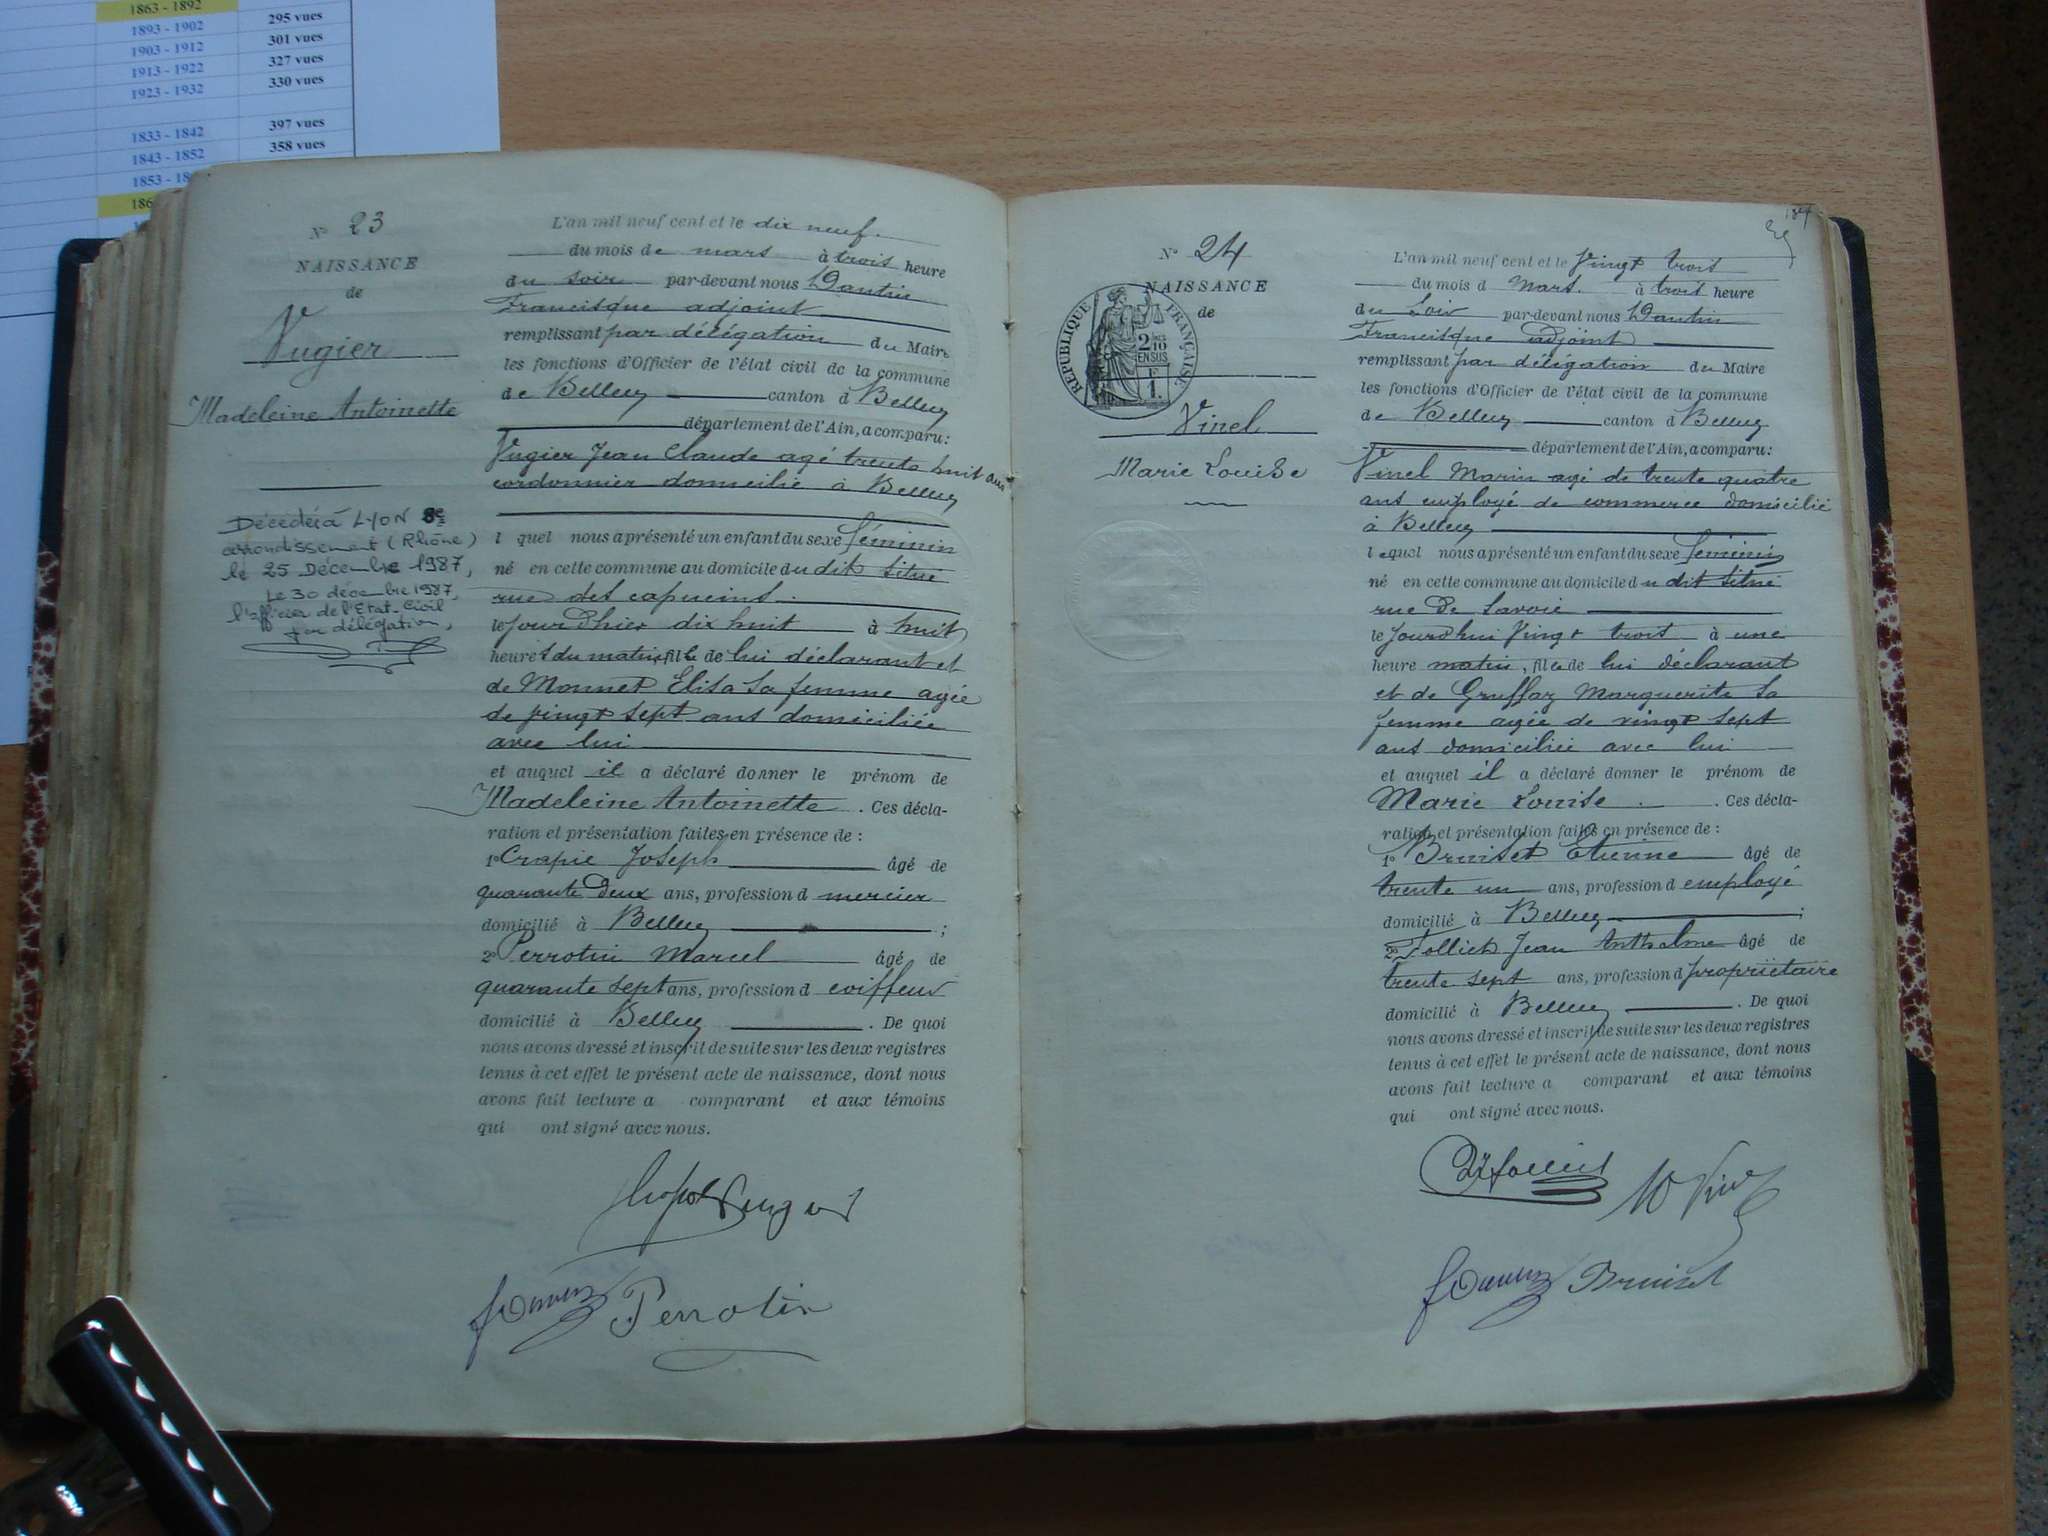 1863 - 1892
1893 - 1902 295 vues
1903 - 1912 301 vues
1913 - 1922 327 vues
1923 - 1932 330 vues
1833 - 1842 397 vues
1843 - 1852 358 vues
1853 - 18
186
N° 23
NAISSANCE
de
Vugier
Madeleine Antoinette
Décédée à LYON 8e
arrondissement (Rhône)
le 25 Décembre 1987,
Le 30 décembre 1987,
l'officier de l'Etat-Civil
par délégation,
L'an mil neuf cent et le dix neuf
du mois de mars à trois heure
du soir par-devant nous Dantin
Francisque adjoint
remplissant par délégation du Maire
les fonctions d'Officier de l'état civil de la commune
de Belley canton d Belley
département de l'Ain, a comparu:
Vugier Jean Claude agé trente huit ans
cordonnier domicilié à Belley
l quel nous a présenté un enfant du sexe féminin
né en cette commune au domicile du dit situé
rue des capucins
le jour d'hier dix huit à huit
heures du matin, fille de lui déclarant et
de Monnet Elisa sa femme agée
de vingt sept ans domiciliée
avec lui
et auquel il a déclaré donner le prénom de
Madeleine Antoinette. Ces décla-
ration et présentation faites en présence de :
1° Crapie Joseph âgé de
quarante deux ans, profession d mercier
domicilié à Belley ;
2° Perrotin Marcel âgé de
quarante sept ans, profession d coiffeur
domicilié à Belley. De quoi
nous avons dressé et inscrit de suite sur les deux registres
tenus à cet effet le présent acte de naissance, dont nous
avons fait lecture a comparant et aux témoins
qui ont signé avec nous.
Perrotin
184
N° 24
NAISSANCE
de
RÉPUBLIQUE FRANÇAISE
2 10
EN SUS
F
1.
Vinel
Marie Louise
L'an mil neuf cent et le vingt trois
du mois d mars. à trois heure
du soir par-devant nous Dantin
Francisque adjoint
remplissant par délégation du Maire
les fonctions d'Officier de l'état civil de la commune
de Belley canton d Belley
département de l'Ain, a comparu:
Vinel Marin agé de trente quatre
ans employé de commerce domicilié
à Belley
lequel nous a présenté un enfant du sexe féminin
né en cette commune au domicile du dit situé
rue de Savoie
le jourdhui vingt trois à une
heure matin, fille de lui déclarant
et de Gruffaz Marguerite sa
femme agée de vingt sept
ans domiciliée avec lui
et auquel il a déclaré donner le prénom de
Marie Louise. Ces décla-
ration et présentation faites en présence de :
1° Bruiset Etienne âgé de
trente un ans, profession d employé
domicilié à Belley ;
2° Follict Jean Anthelme âgé de
trente sept ans, profession d propriétaire
domicilié à Belley. De quoi
nous avons dressé et inscrit de suite sur les deux registres
tenus à cet effet le présent acte de naissance, dont nous
avons fait lecture a comparant et aux témoins
qui ont signé avec nous.
Bruiset